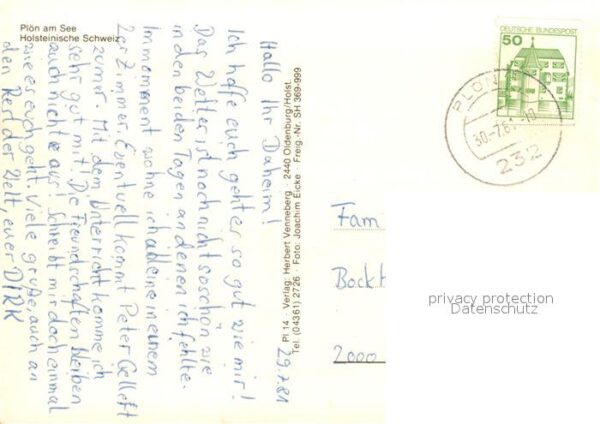 Plön am See
Holsteinische Schweiz
29.7.81
Hallo Ihr Daheim!
Ich hoffe euch geht er so gut wie mir!
Das Wetter ist noch nicht so schön wie
in den beiden Tagen an denen ich fehlte.
Im moment wohne ich alleine in einem
2er Zimmer. Eventuell kommt Peter Gelleft
zumir. Mit dem Unterricht komme ich
sehr gut mit! Die Freundschaften bleiben
auch nicht aus. Schreibt mir doch einmal
wie es euch geht. Viele grüße, auch an
den Rest der Welt, euer DIRK
Pl 14 · Verlag: Herbert Venneberg 2440 Oldenburg/Holst.
Tel. (04361) 2726 · Foto: Joachim Eicke · Freig.-Nr. SH 369-999
DEUTSCHE BUNDESPOST
50
PLÖN
30.-7.81-10
232
Fam
Bockh
2000
privacy protection
Datenschutz